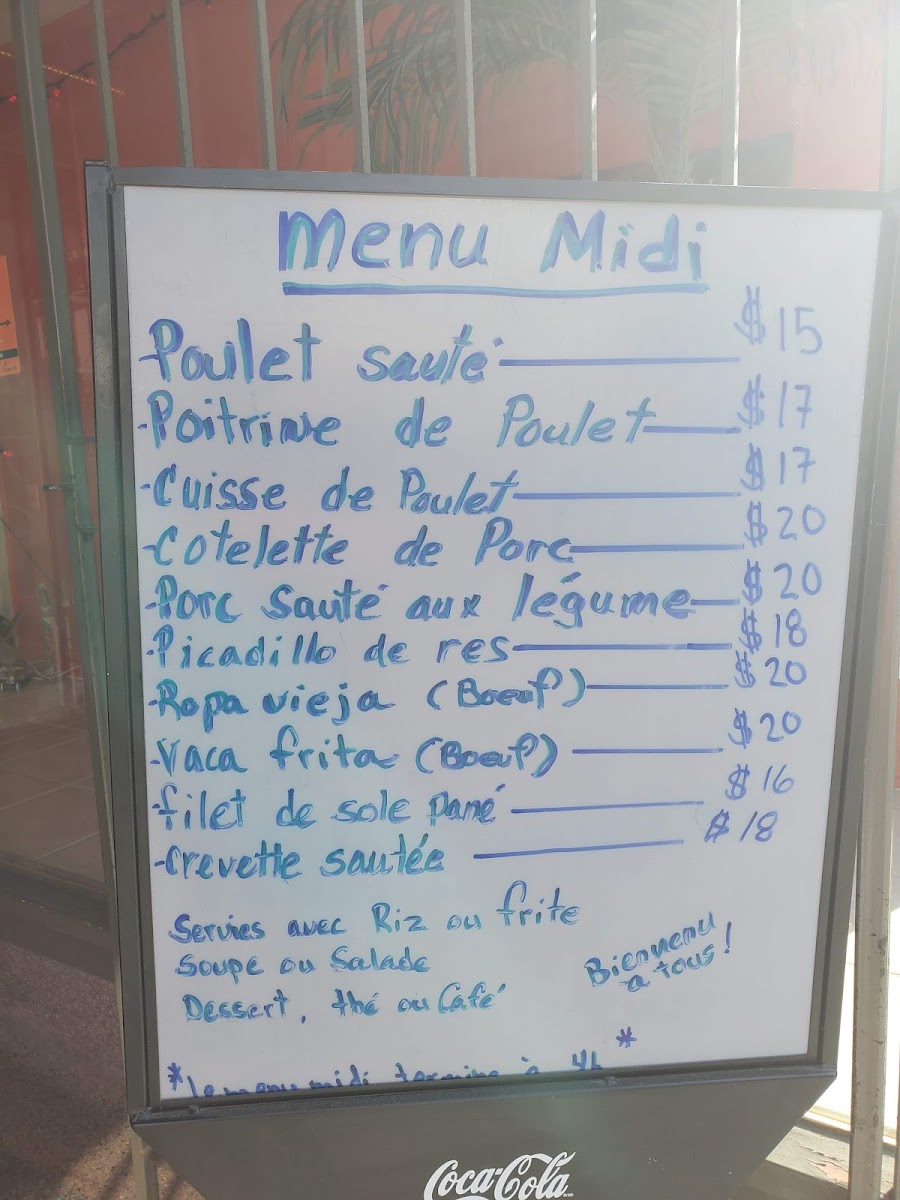 Menu Midi
-Poulet sauté $15
-Poitrine de Poulet $17
-Cuisse de Poulet $17
-Cotelette de Porc $20
-Porc Sauté aux légume $20
-Picadillo de res $18
-Ropa vieja (Boeuf) $20
-Vaca frita (Boeuf) $20
-filet de sole pané $16
-crevette sautée $18
Servies avec Riz ou frite
Soupe ou Salade
Dessert, thé ou Café
Bienvenu
a tous!
*le menu midi termine à 4h*
Coca-Cola